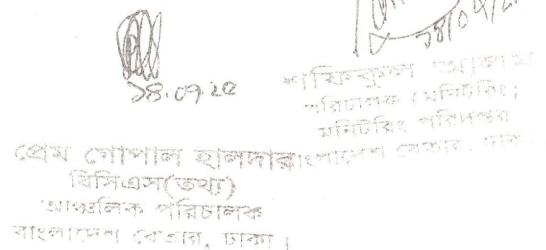 ১৪.০৭.২৫
প্রেম গোপাল হালদার
বিসিএস(তথ্য)
আঞ্চলিক পরিচালক
বাংলাদেশ বেতার, ঢাকা।
পরিচালক (মনিটরিং)
মনিটরিং পরিদপ্তর
বাংলাদেশ বেতার, ঢাকা